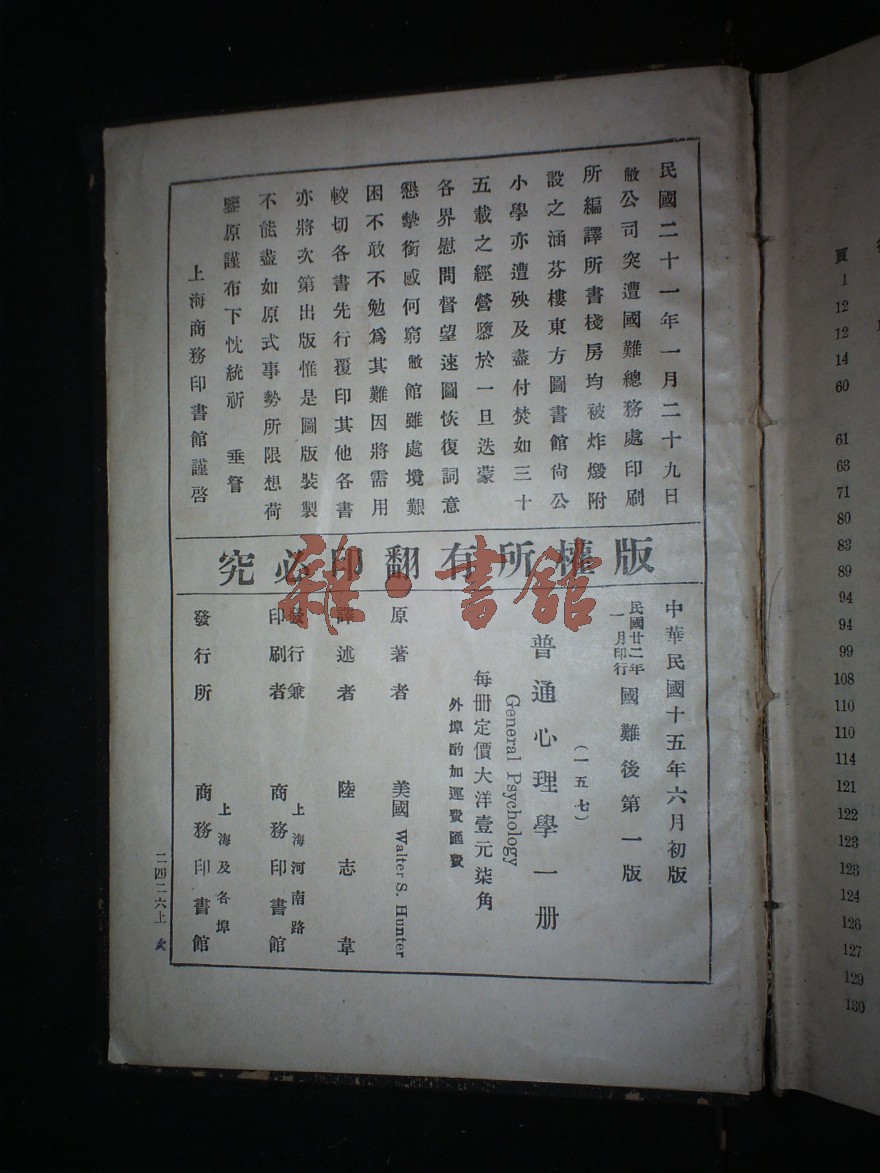 民國二十一年一月二十九日
敝公司突遭國難總務處印刷
所編譯所書棧房均被炸燬附
設之涵芬樓東方圖書館尙公
小學亦遭殃及盡付焚如三十
五載之經營隳於一旦迭蒙
各界慰問督望速圖恢復詞意
懇摯銜感何窮敝館雖處境艱
困不敢不勉爲其難因將需用
較切各書先行覆印其他各書
亦將次第出版惟是圖版裝製
不能盡如原式事勢所限想荷
鑒原謹布下忱統祈 垂詧
上海商務印書館謹啓
版權所有翻印必究
中華民國十五年六月初版
民國廿二年一月印行 國難後第一版
(一五七)
普通心理學一册
General Psychology
每册定價大洋壹元柒角
外埠酌加運費匯費
原著者 美國 Walter S. Hunter
譯述者 陸志韋
發行兼印刷者 上海河南路 商務印書館
發行所 上海及各埠 商務印書館
二四二六上
雜·書館
頁
1
12
12
14
60
61
63
71
80
83
89
94
94
99
108
110
110
114
121
122
123
123
124
126
127
129
130